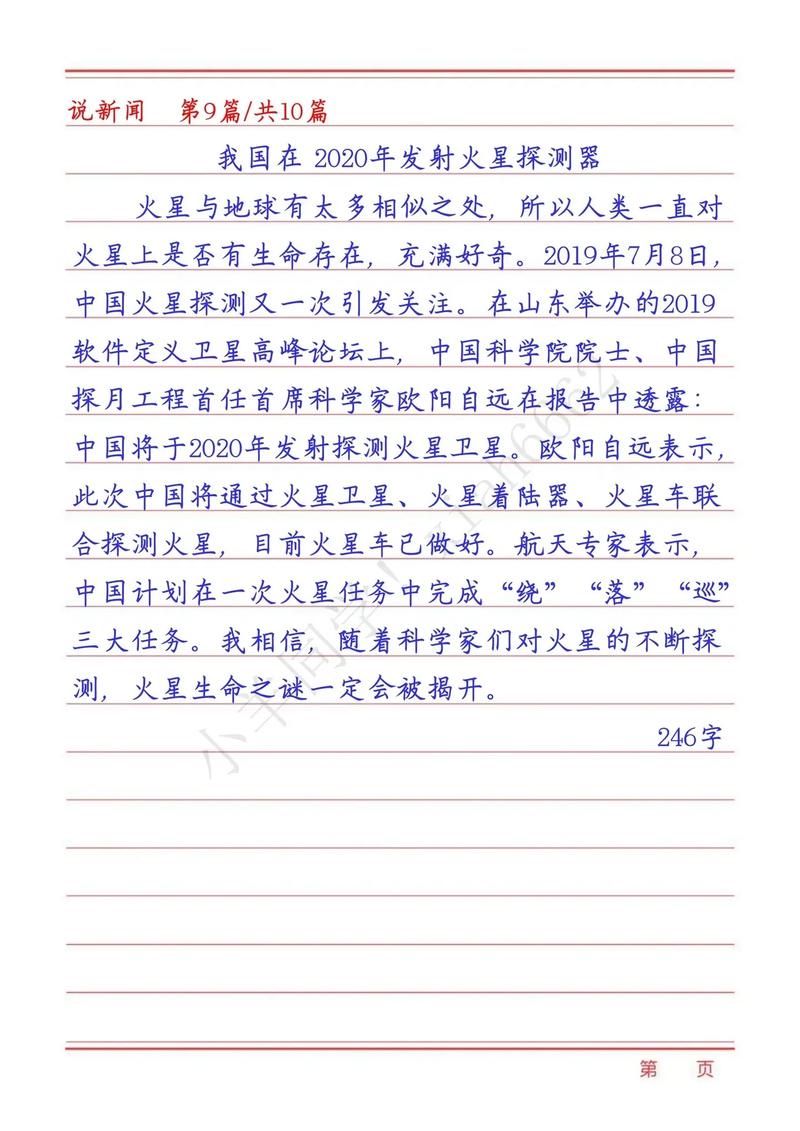 说新闻 第9篇/共10篇
我国在 2020年发射火星探测器
火星与地球有太多相似之处，所以人类一直对
火星上是否有生命存在，充满好奇。2019年7月8日，
中国火星探测又一次引发关注。在山东举办的2019
软件定义卫星高峰论坛上，中国科学院院士、中国
探月工程首任首席科学家欧阳自远在报告中透露：
中国将于2020年发射探测火星卫星。欧阳自远表示，
此次中国将通过火星卫星、火星着陆器、火星车联
合探测火星，目前火星车已做好。航天专家表示，
中国计划在一次火星任务中完成“绕” “落” “巡”
三大任务。我相信，随着科学家们对火星的不断探
测，火星生命之谜一定会被揭开。
246字
小羊同学！xiah6662
第 页